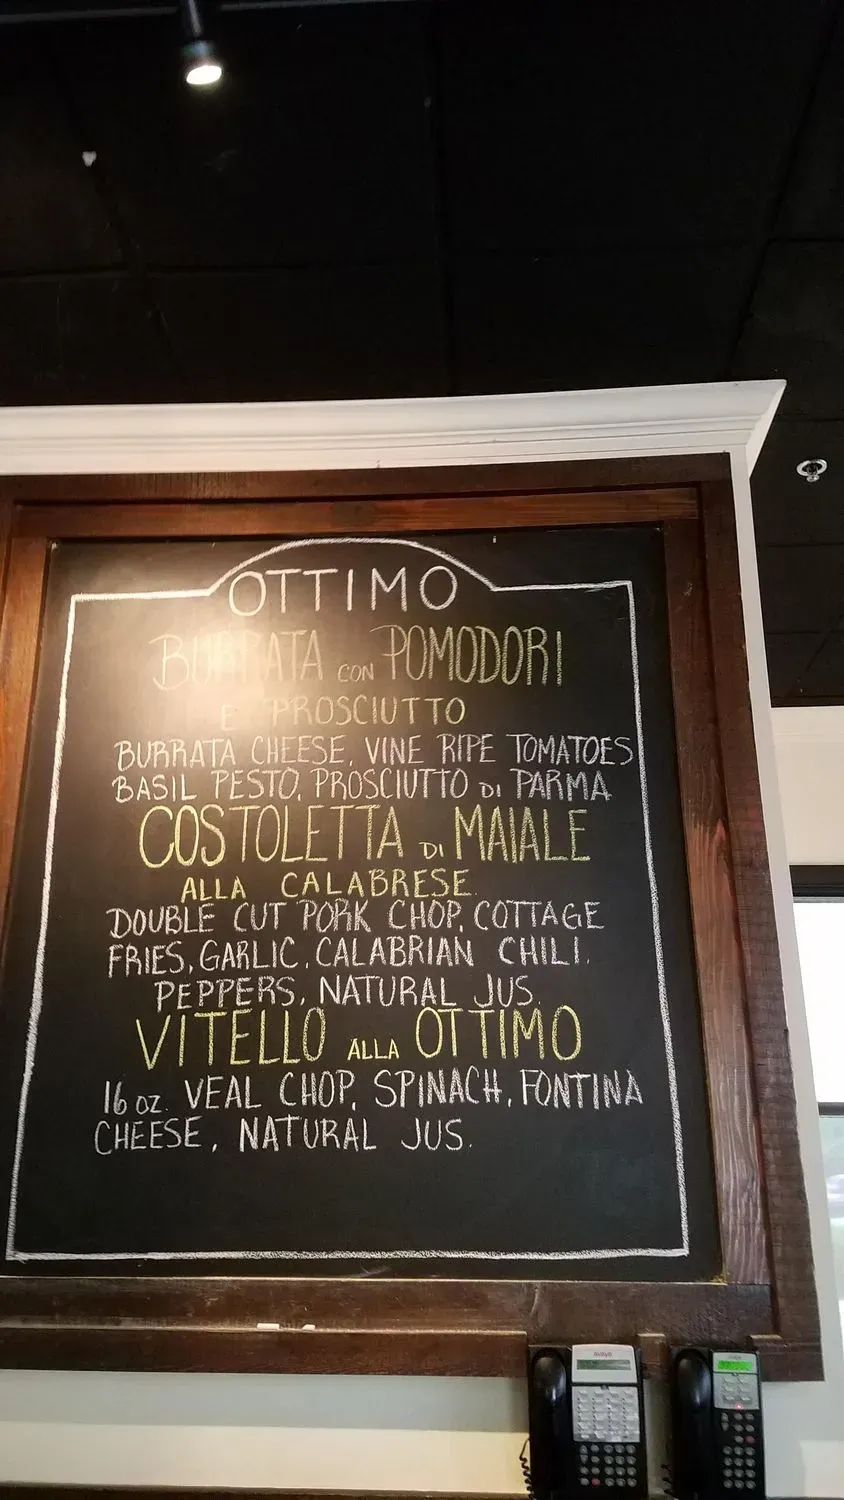 OTTIMO
BURRATA CON POMODORI
E PROSCIUTTO
BURRATA CHEESE, VINE RIPE TOMATOES
BASIL PESTO, PROSCIUTTO DI PARMA
COSTOLETTA DI MAIALE
ALLA CALABRESE
DOUBLE CUT PORK CHOP, COTTAGE
FRIES, GARLIC, CALABRIAN CHILI,
PEPPERS, NATURAL JUS.
VITELLO ALLA OTTIMO
16 OZ. VEAL CHOP, SPINACH, FONTINA
CHEESE, NATURAL JUS.
AVAYA